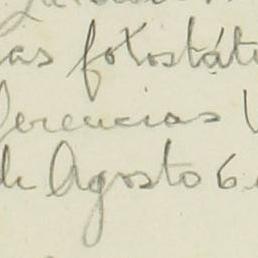 as fotostát
erencias
de Agosto 6